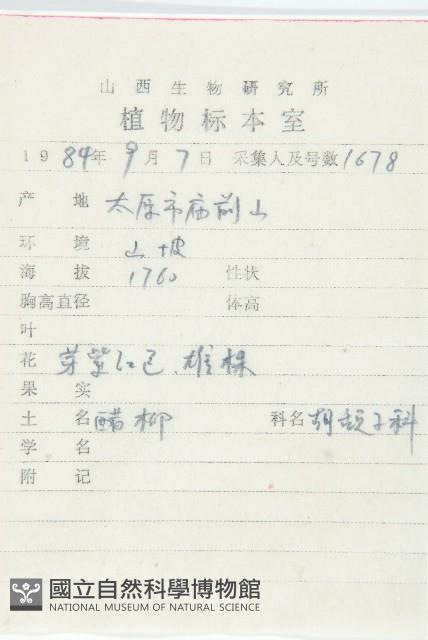 山西生物研究所
植物标本室
1984年9月7日 采集人及号数1678
产地 太原市庙前山
环境 山坡
海拔 1760 性状
胸高直径 体高
叶
花 芽紫红色、雄株
果实
土名 醋柳 科名 胡颓子科
学名
附记
國立自然科學博物館
NATIONAL MUSEUM OF NATURAL SCIENCE